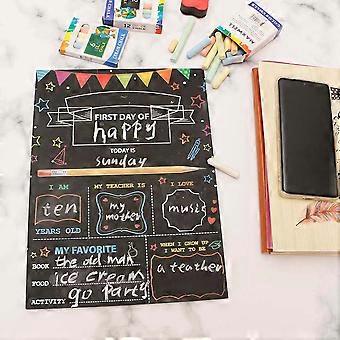 FIRST DAY OF
happy
TODAY IS
sunday
I AM
ten
YEARS OLD
MY TEACHER IS
my
mother
I LOVE
music
MY FAVORITE
BOOK the old man
FOOD ice cream
ACTIVITY go party
WHEN I GROW UP
I WANT TO BE
a teacher